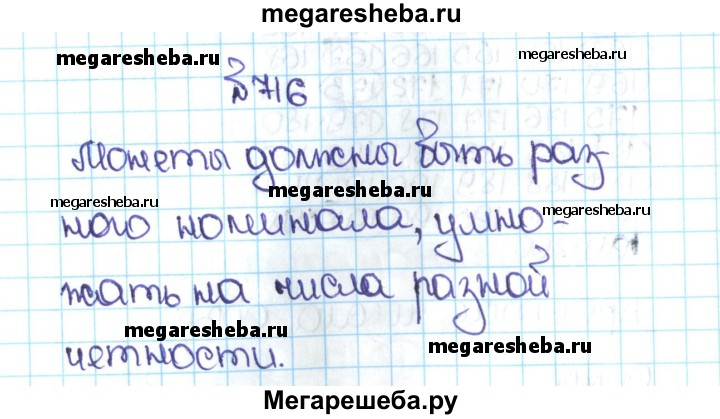 megaresheba.ru
megaresheba.ru megaresheba.ru
№ 716
Монеты должны быть раз
megaresheba.ru megaresheba.ru megaresheba.ru
ного номинала, умно-
жать на числа разной
megaresheba.ru megaresheba.ru
четности.
Мегарешеба.ру